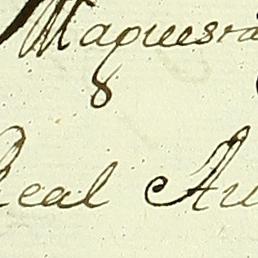 Maquesra
8
Real Au